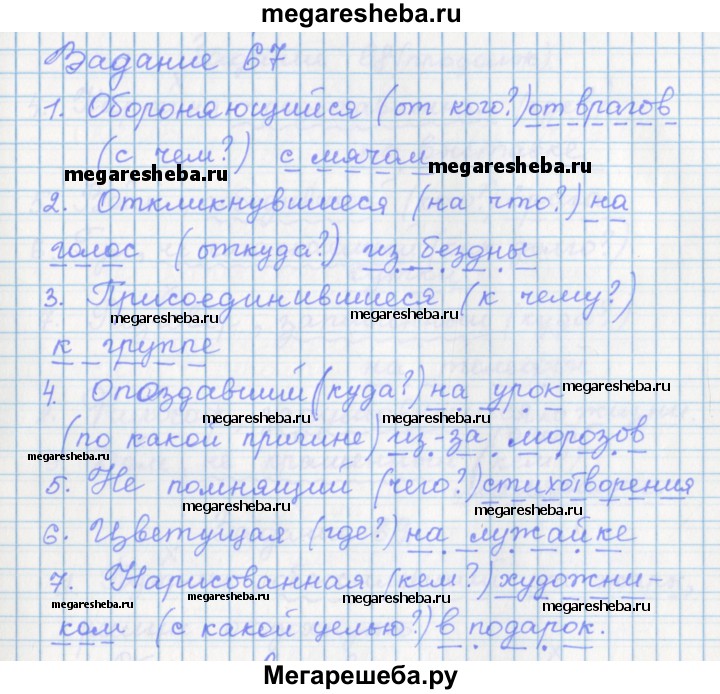 megaresheba.ru
Задание 67
1. Обороняющийся (от кого?) от врагов
(с чем?) с мячом
megaresheba.ru
megaresheba.ru
2. Откликнувшиеся (на что?) на
голос (откуда?) из бездны
3. Присоединившиеся (к чему?)
megaresheba.ru
megaresheba.ru
к группе
4. Опоздавший (куда?) на урок
megaresheba.ru
megaresheba.ru
(по какой причине) из-за морозов
megaresheba.ru
5. Не помнящий (чего?) стихотворения
megaresheba.ru
megaresheba.ru
6. Цветущая (где?) на лужайке
7. Нарисованная (кем?) художни-
megaresheba.ru
megaresheba.ru
megaresheba.ru
megaresheba.ru
ком (с какой целью?) в подарок.
Мегарешеба.ру